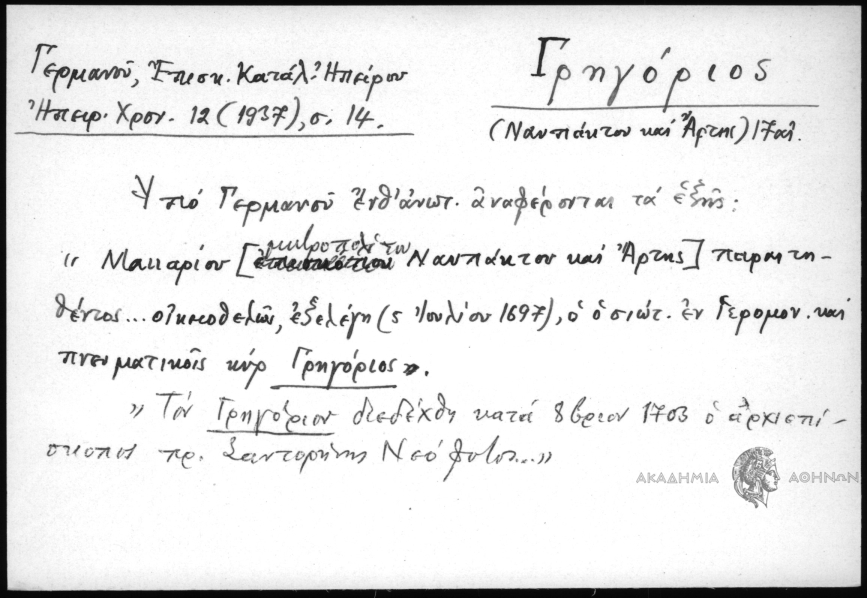 Γερμανοῦ, Ἐπισκ. Κατάλ. Ἠπείρου
Ἠπειρ. Χρον. 12 (1937), σ. 14.
Γρηγόριος
(Ναυπάκτου καί Ἄρτης) 17 αἰ.
Ὑπό Γερμανοῦ ἔνθ' ἀνωτ. ἀναφέρονται τά ἑξῆς:
μητροπολίτου
" Μακαρίου [ Ναυπάκτου καί Ἄρτης] παραιτη-
θέντος... οἰκειοθελῶς, ἐξελέγη (5 Ἰουλίου 1697), ὁ ὁσιώτ. ἐν Ἱερομον. καί
πνευματικοῖς κύρ Γρηγόριος".
" Τόν Γρηγόριον διεδέχθη κατά 8βριον 1703 ὁ ἀρχιεπί-
σκοπος πρ. Σαντορήνης Νεόφυτος..."
ΑΚΑΔΗΜΙΑ ΑΘΗΝΩΝ